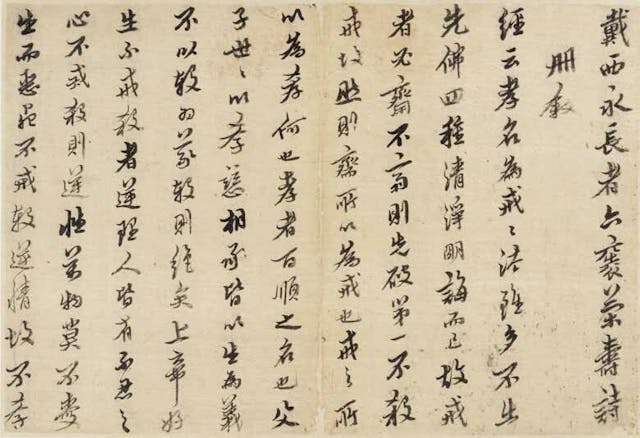 戴西永長者六袠榮壽詩
冊敘
經云孝名為戒〻法雖多不出
先佛四種清淨明誨而已故戒
者必齋不齋則先破第一不殺
戒故然則齋所以為戒也戒之所
以為孝何也孝者百順之名也父
子世〻以孝慈相承皆以生為義
不以殺為義殺則絕矣上帝好
生不戒殺者逆理人皆有不忍之
心不戒殺則逆性萬物莫不愛
生而惡死不戒殺逆情故不孝